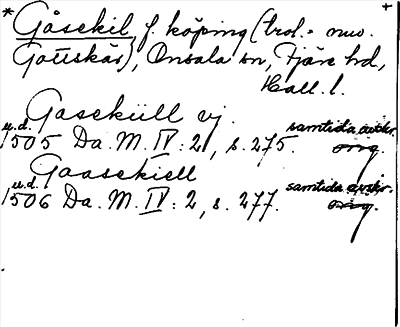 * Gåsekil f. köping (trol. = nuv. +
Gottskär), Onsala sn, Fjäre hd,
Hall. l.
Gaseküll vj.
u.d. samtida avskr.
1505 Da. M. IV: 2, s. 275. orig.
Gaasekiell
u.d. samtida avskr.
1506 Da. M. IV: 2, s. 277. orig.